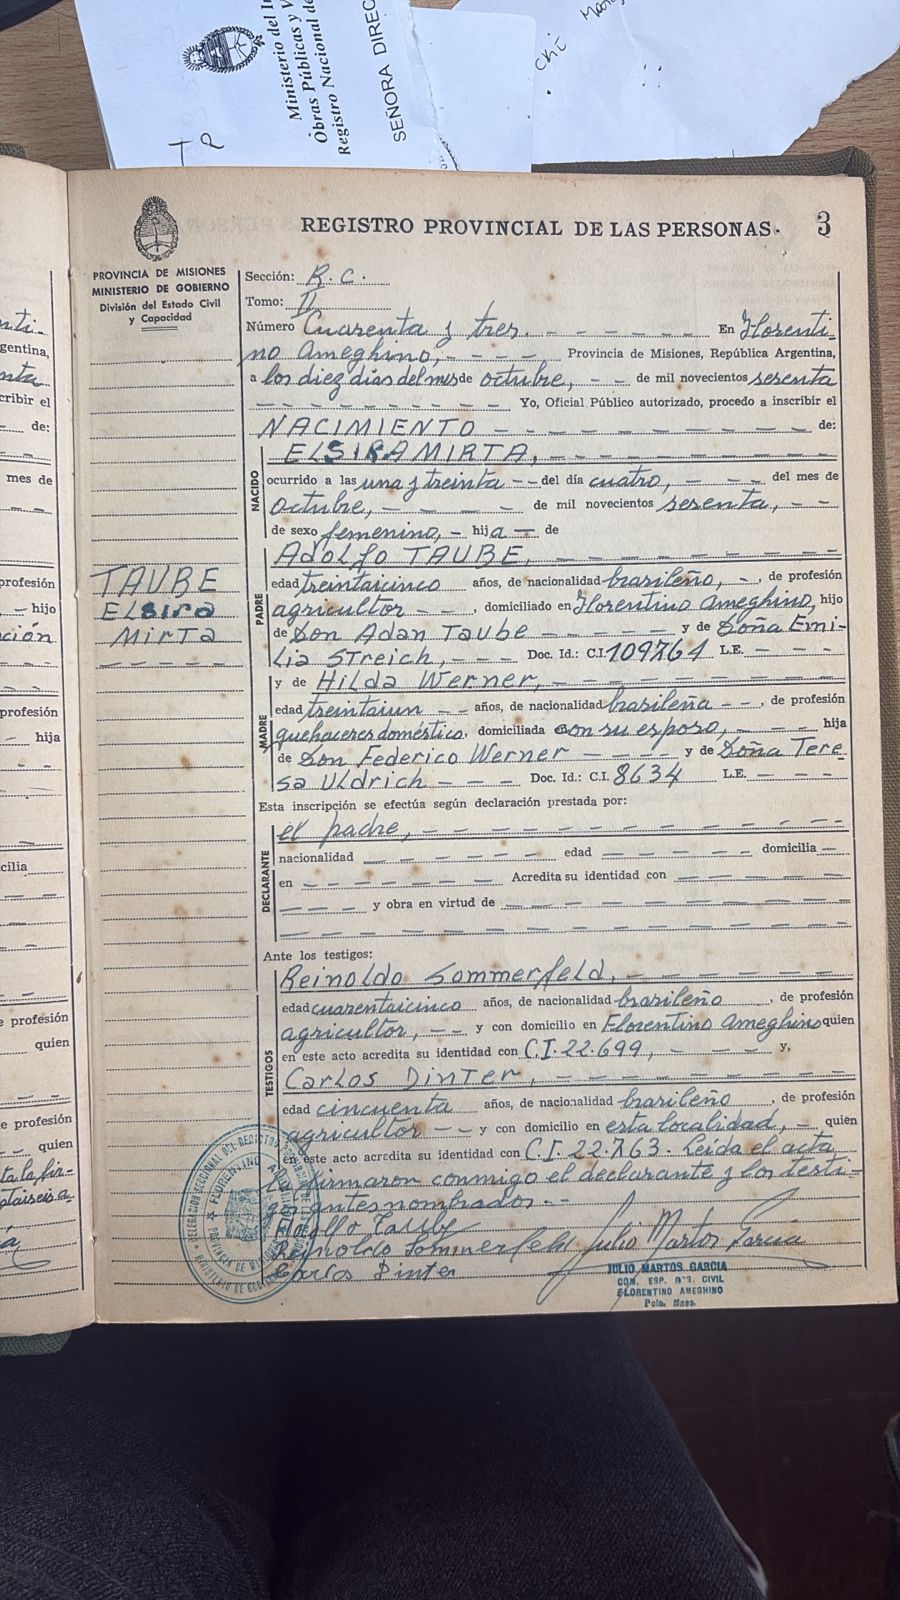 Ministerio del In
Obras Públicas y V
Registro Nacional de
SEÑORA DIREC
REGISTRO PROVINCIAL DE LAS PERSONAS. 3
PROVINCIA DE MISIONES
MINISTERIO DE GOBIERNO
División del Estado Civil
y Capacidad
Sección: R.C.
Tomo: II
Número Cuarenta y tres. - - - - - - - En Florenti-
no Ameghino, - - - - Provincia de Misiones, República Argentina,
a los diez días del mes de octubre, - - de mil novecientos sesenta
- - - - - - - - - - Yo, Oficial Público autorizado, procedo a inscribir el
NACIMIENTO - - - - - - - - - - - - de:
NACIDO
ELSIRA MIRTA, - - - - - - - - - - -
ocurrido a las una y treinta - - del día cuatro, - - - - del mes de
octubre, - - - - - de mil novecientos sesenta, - -
de sexo femenino, - hija - de
PADRE
ADOLFO TAUBE, - - - - - - - - - -
TAUBE
ELSIRA
MIRTA
- - - - -
edad treintaicinco años, de nacionalidad brasileño, - , de profesión
agricultor - - , domiciliado en Florentino Ameghino, hijo
de Don Adan Taube - - - - - y de Doña Emi-
lia Streich, - - - Doc. Id.: C.I. 109764 L.E. - - -
MADRE
y de Hilda Werner, - - - - - - - - - -
edad treintaiun - - años, de nacionalidad brasileña - - , de profesión
quehaceres doméstico, domiciliada con su esposo, - - - - hija
de Don Federico Werner - - - - y de Doña Tere
sa Uldrich - - - Doc. Id.: C.I. 8634 L.E. - - -
Esta inscripción se efectúa según declaración prestada por:
DECLARANTE
el padre, - - - - - - - - - - - - - -
nacionalidad - - - - - - edad - - - - - domicilia -
en - - - - - - Acredita su identidad con - - - - -
- - - y obra en virtud de - - - - - - - - - -
- - - - - - - - - - - - - - - - -
Ante los testigos:
TESTIGOS
Reinoldo Sommerfeld, - - - - - - -
edad cuarentaicinco años, de nacionalidad brasileño , de profesión
agricultor, - - y con domicilio en Florentino Ameghino quien
en este acto acredita su identidad con C.I. 22.699, - - - - y,
Carlos Dinter, - - - - - - - - - -
edad cincuenta años, de nacionalidad brasileño , de profesión
agricultor - - y con domicilio en esta localidad, - quien
en este acto acredita su identidad con C.I. 22.763. Leída el acta
la firmaron conmigo el declarante y los testi-
gos antes nombrados. - -
Adolfo Taube
Reinoldo Sommerfeld Julio Martos García
Carlos Dinter
JULIO MARTOS GARCIA
FLORENTINO AMEGHINO